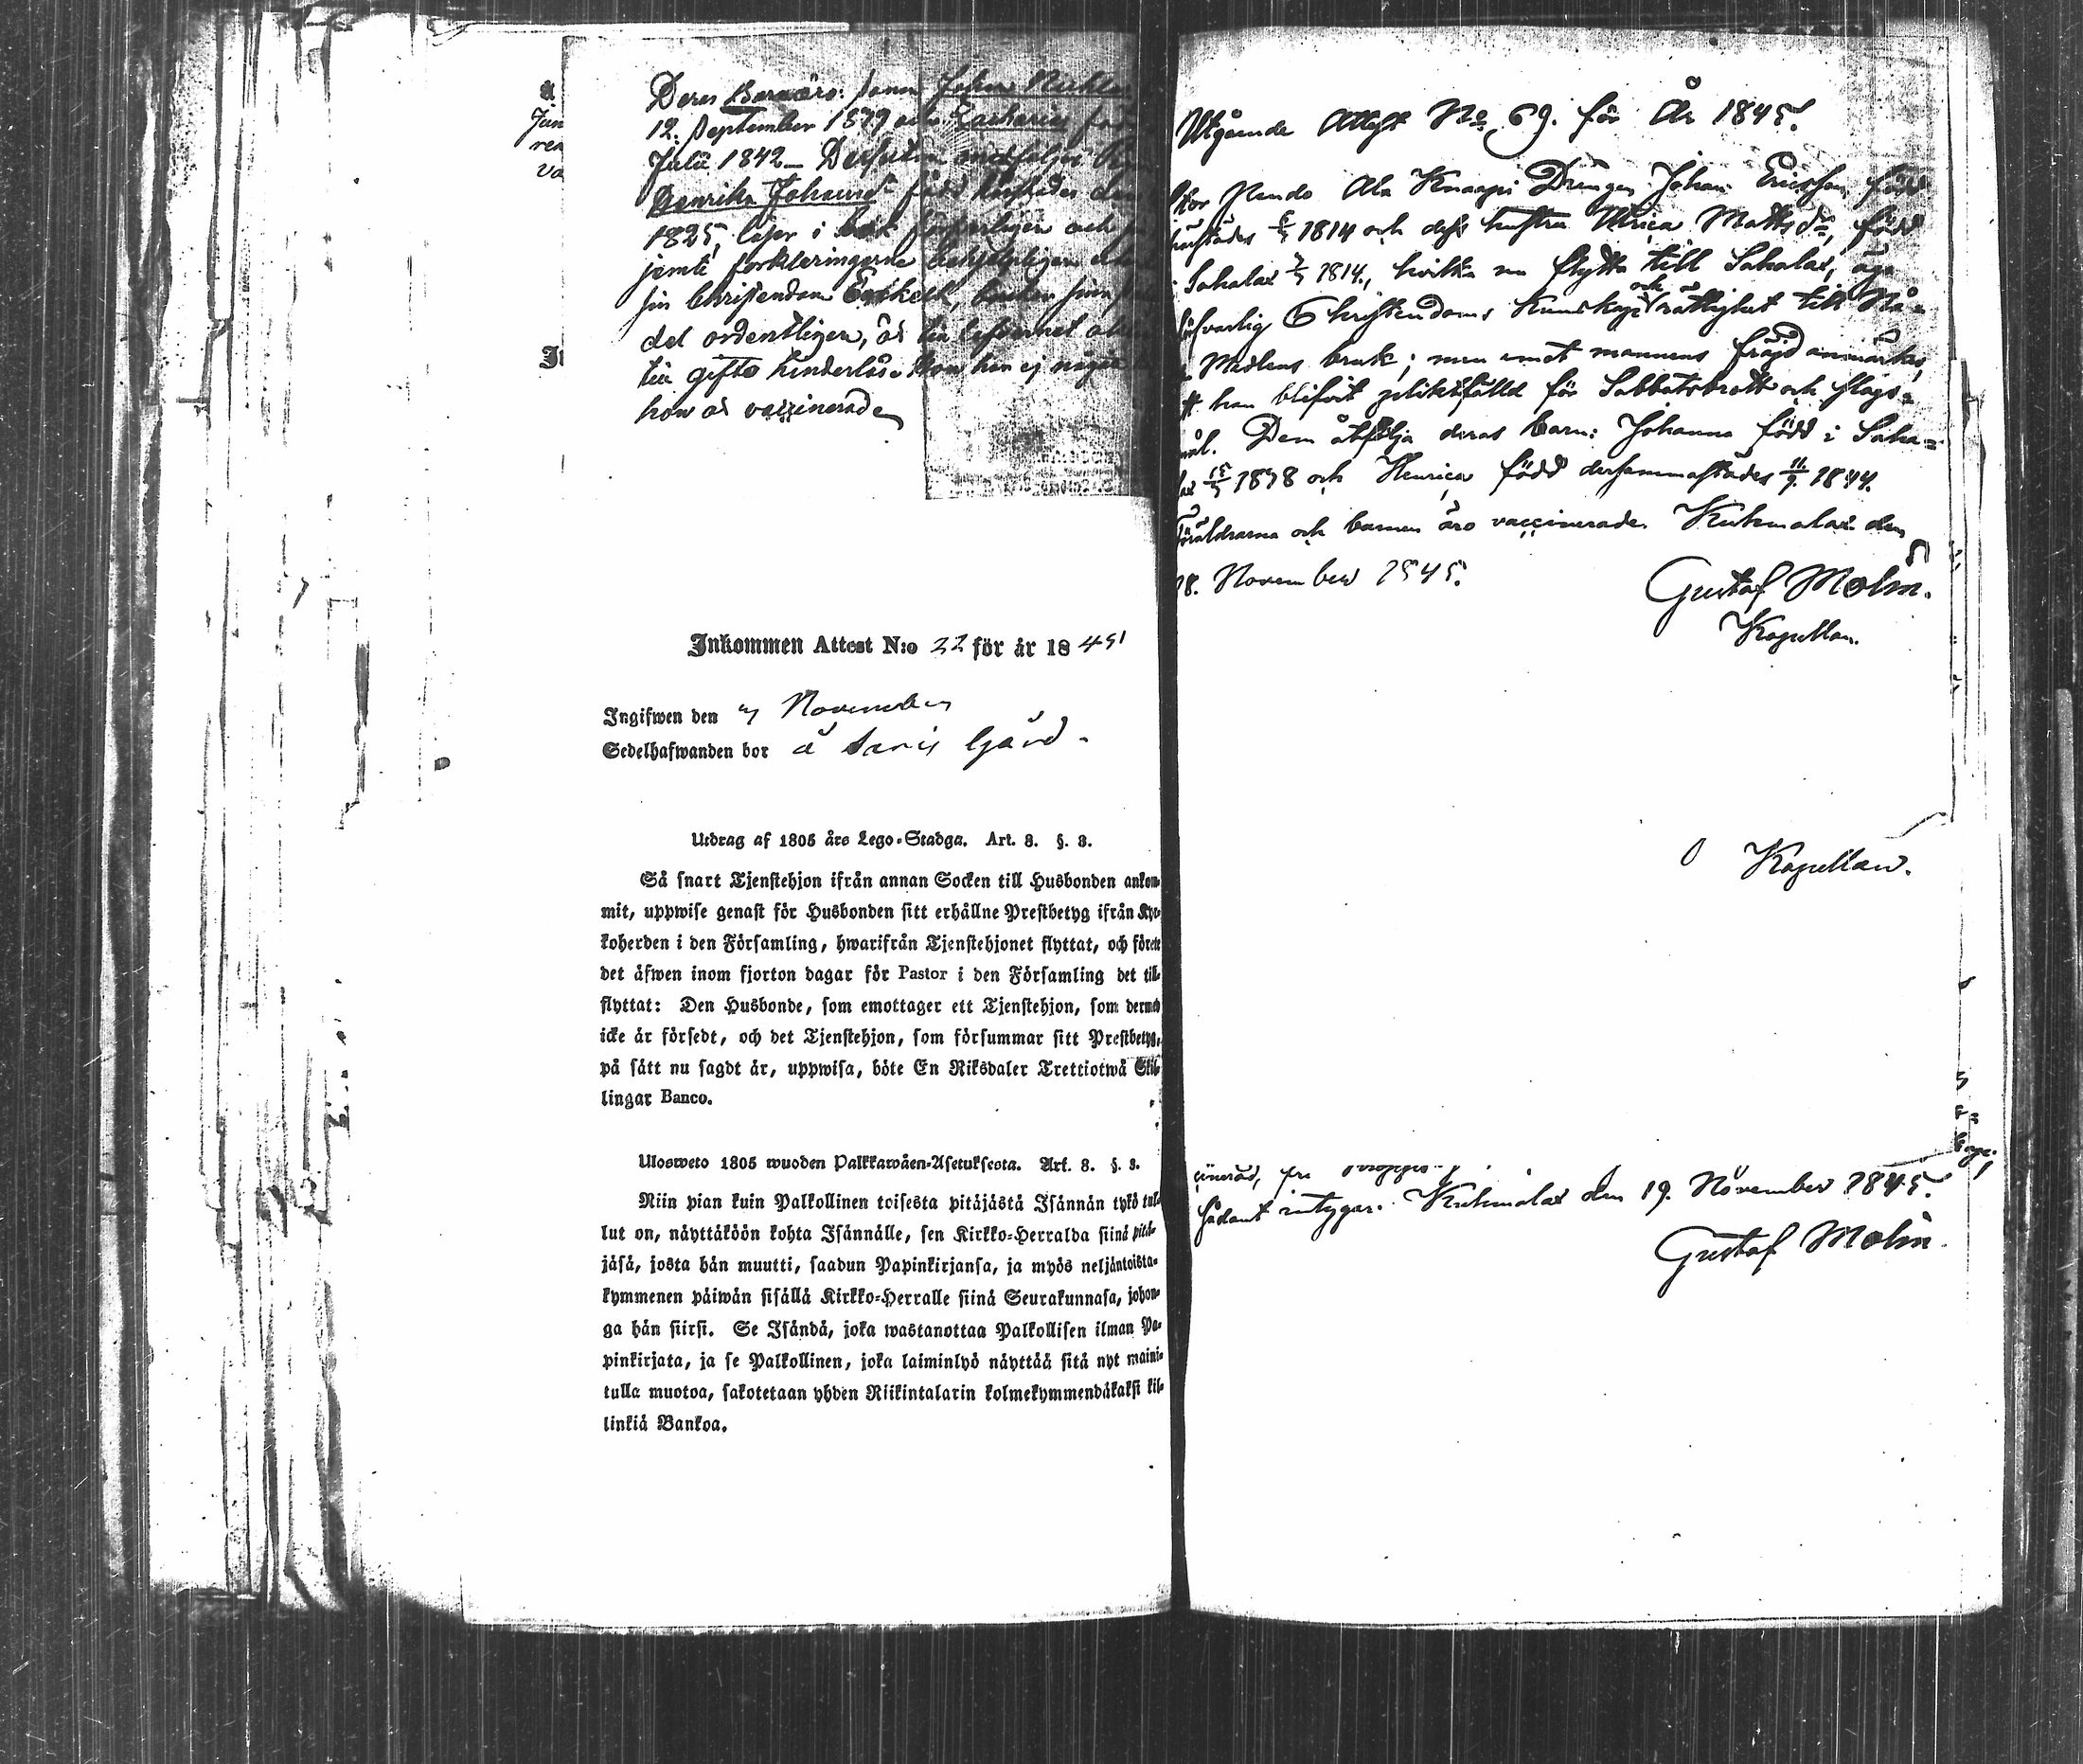 Deras Barn äro: Sonen Johan Nichla
12. September 1839 och Zacharias föd
Julii 1842 – Dessutom medföljer
Henrika Johansd:r född härstädes den
1825, läser i bok försvarligen och
jemte förklaringarne behjelpligen
sin Christendom Enskelt,
del ordentligen, är till lefvernet
till gifte hinderlös. Kan hon ej någon
hon är vaccinerad
Jun
ren
va
Inkommen Attest N:o 22 för år 1845
Ingifwen den November
Sedelhafwanden bor å Saris Gård.
Utdrag af 1805 års Lego-Stadga. Art. 8. §. 3.
Så snart Tjenstehjon ifrån annan Socken till Husbonden ankom-
mit, uppwise genast för Husbonden sitt erhållne Prestbetyg ifrån Kyr-
koherden i den Församling, hwarifrån Tjenstehjonet flyttat, och förete
det äfwen inom fjorton dagar för Pastor i den Församling det till-
flyttat: Den Husbonde, som emottager ett Tjenstehjon, som dermed
icke är försedt, och det Tjenstehjon, som försummar sitt Prestbetyg,
på sätt nu sagdt är, uppwisa, böte En Riksdaler Trettiotwå Skil-
lingar Banco.
Ulosweto 1805 wuoden Palkkawäen-Asetuksesta. Art. 8. §. 3.
Niin pian kuin Palkollinen toisesta pitäjästä Isännän tykö tul-
lut on, näyttäköön kohta Isännälle, sen Kirkko-Herralda siinä pitä-
jäsä, josta hän muutti, saadun Papinkirjansa, ja myös neljäntoista-
kymmenen päiwän sisällä Kirkko-Herralle siinä Seurakunnasa, johon-
ga hän siirsi. Se Isändä, joka wastanottaa Palkollisen ilman Pa-
pinkirjata, ja se Palkollinen, joka laiminlyö näyttää sitä nyt maini-
tulla muotoa, sakotetaan yhden Riikintalarin kolmekymmendäkaksi kil-
linkiä Bankoa.
Utgående Attest No 69. för År 1845.
Ala Knaapi Drängen Johan Ericsson, född
härstädes 1814 och dess hustru Ulrica Mattsdr, född
i Sahalax 1814, hvilka nu flytta till Sahalax, äga
försvarlig Christendoms Kunskap och rättighet till Nå-
Medlens bruk; men emot mannens fräjd anmärkes,
tt han blifvit pliktfälld för Sabbatsbrott och slags-
mål. Dem åtfölja deras barn: Johanna född i Saha-
lax 1838 och Henrica född dersammastädes 11/9 1844.
Föräldrarna och barnen äro vaccinerade. Kuhmalax den
18. November 1845.
Gustaf Molin.
Kapellan.
Kapellan.
cinerad,
Sådant intygar. Kuhmalax den 19. November 1845.
Gustaf Molin.